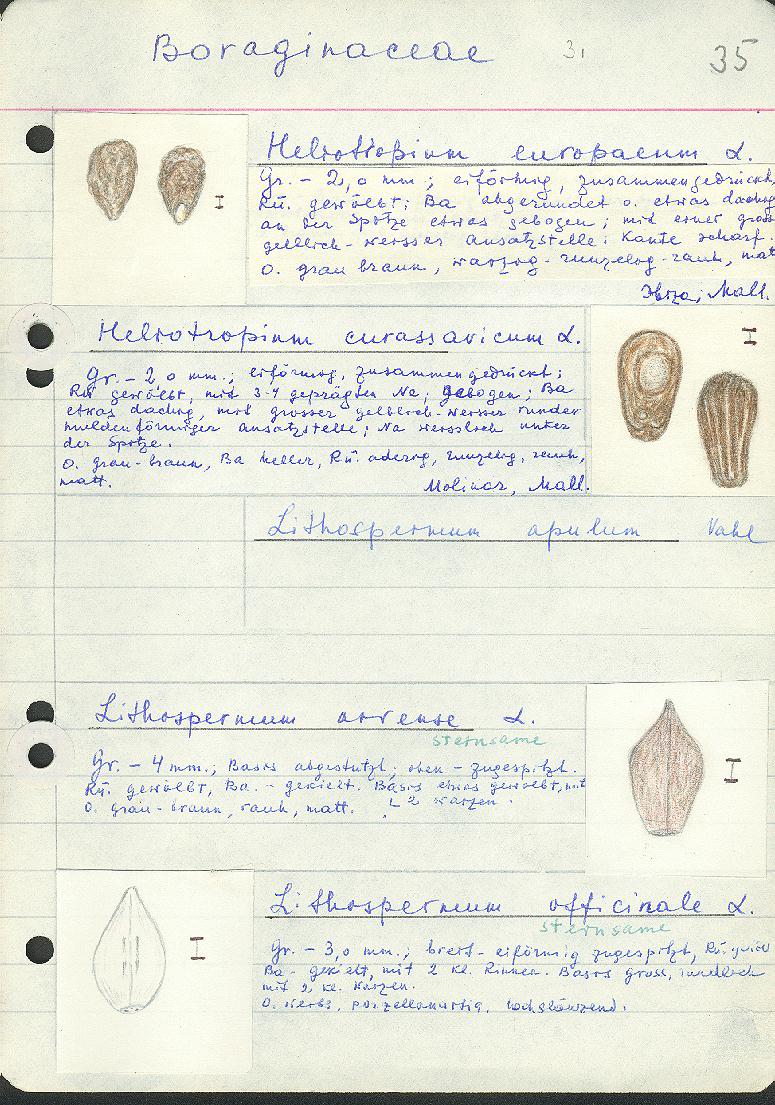 Boraginaceae 3. 35
Heliotropium europaeum L.
Gr. - 2,0 mm; eiförmig, zusammengedrückt,
Rü. gewölbt; Ba abgerundet o. etwas dachig
an der Spitze etwas gebogen; mit einer gross
gelblich-weisser Ansatzstelle; Kante scharf.
O. grau braun, warzig-runzelig-rauh, mat
Ibiza, Mall.
Heliotropium curassavicum L.
Gr. - 2,0 mm.; eiförmig, zusammengedrückt;
Rü gewölbt, mit 3-4 geprägten Na; gebogen; Ba
etwas dachig, mit grosser gelblich-weisser runder
muldenförmiger Ansatzstelle; Na weisslich unter
der Spitze.
O. grau-braun, Ba heller, Rü. aderig, runzelig, rauh,
matt.
Molinar, Mall.
Lithospermum apulum Vahl
Lithospermum arvense L.
Steinsame
Gr. - 4 mm.; Basis abgestutzt; oben - zugespitzt.
Rü. gewölbt, Ba. - gekielt. Basis etwas gewölbt, mit
O. grau-braun, rauh, matt. 2 Warzen.
Lithospermum officinale L.
Steinsame
Gr. - 3,0 mm.; breit-eiförmig zugespitzt, Rü.
Ba - gekielt, mit 2 kl. Rinnen. Basis gross, rundlich
mit 2 kl. Warzen.
O. weiss, porzellanartig, hochglänzend.